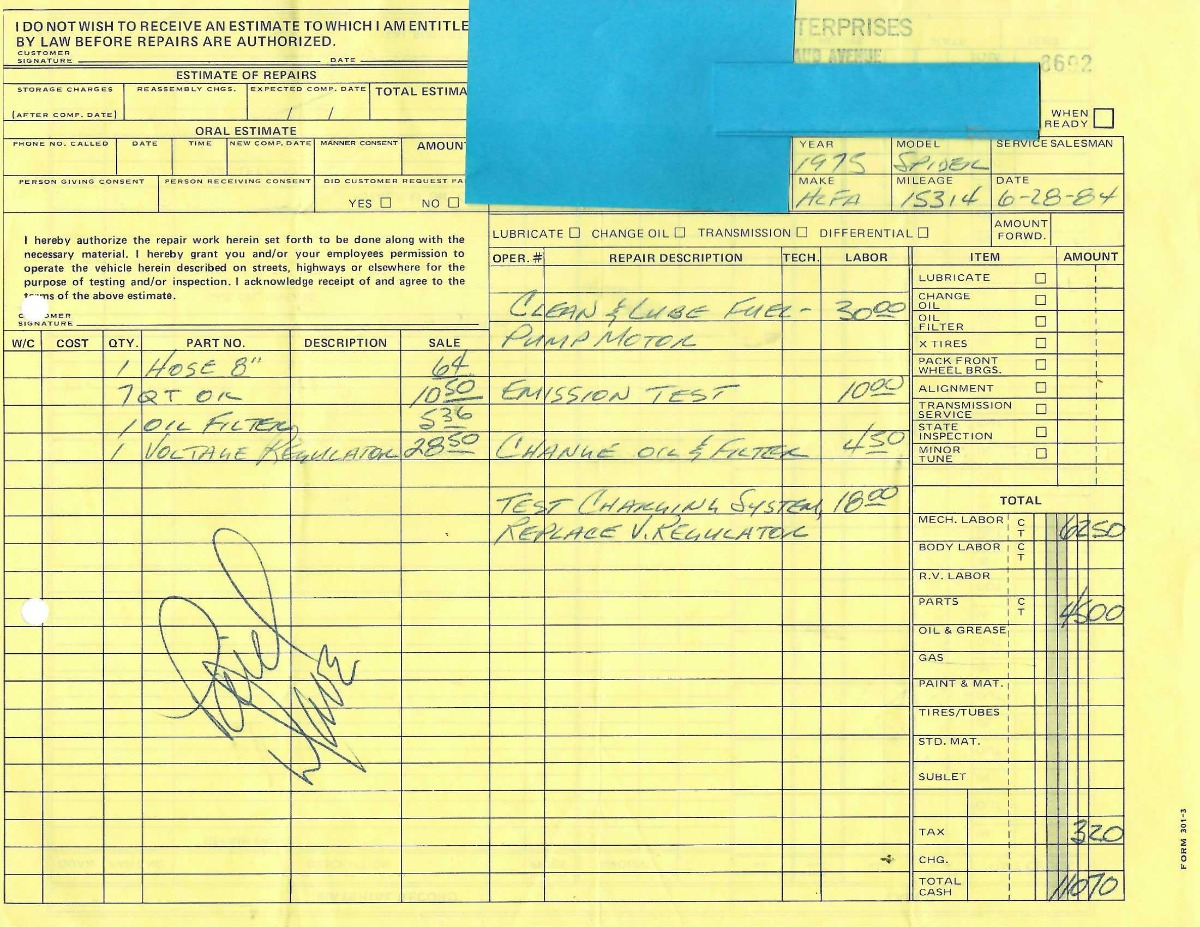 I DO NOT WISH TO RECEIVE AN ESTIMATE TO WHICH I AM ENTITLE
BY LAW BEFORE REPAIRS ARE AUTHORIZED.
CUSTOMER
SIGNATURE DATE
ESTIMATE OF REPAIRS
STORAGE CHARGES REASSEMBLY CHGS. EXPECTED COMP. DATE TOTAL ESTIMA
(AFTER COMP. DATE) / /
ORAL ESTIMATE
PHONE NO. CALLED DATE TIME NEW COMP. DATE MANNER CONSENT AMOUNT
PERSON GIVING CONSENT PERSON RECEIVING CONSENT DID CUSTOMER REQUEST PA
YES NO
I hereby authorize the repair work herein set forth to be done along with the
necessary material. I hereby grant you and/or your employees permission to
operate the vehicle herein described on streets, highways or elsewhere for the
purpose of testing and/or inspection. I acknowledge receipt of and agree to the
terms of the above estimate.
SIGNATURE
TERPRISES
AVENUE
8692
WHEN
READY
YEAR MODEL SERVICE SALESMAN
1975 SPIDER
MAKE MILEAGE DATE
ALFA 15314 6-28-84
LUBRICATE CHANGE OIL TRANSMISSION DIFFERENTIAL AMOUNT FORWD.
W/C COST QTY. PART NO. DESCRIPTION SALE
1 HOSE 8" 64
7 QT OIL 10 50
1 OIL FILTER 5 36
1 VOLTAGE REGULATOR 28 50
OPER. # REPAIR DESCRIPTION TECH. LABOR
CLEAN & LUBE FUEL- 30 00
PUMP MOTOR
EMISSION TEST 10 00
CHANGE OIL & FILTER 4 50
TEST CHARGING SYSTEM, 18 00
REPLACE V. REGULATOR
ITEM AMOUNT
LUBRICATE
CHANGE OIL
OIL FILTER
X TIRES
PACK FRONT WHEEL BRGS.
ALIGNMENT
TRANSMISSION SERVICE
STATE INSPECTION
MINOR TUNE
TOTAL
MECH. LABOR C T 62 50
BODY LABOR C T
R.V. LABOR
PARTS C T 45 00
OIL & GREASE
GAS
PAINT & MAT.
TIRES/TUBES
STD. MAT.
SUBLET
TAX 3 20
CHG.
TOTAL CASH 110 70
FORM 301-3